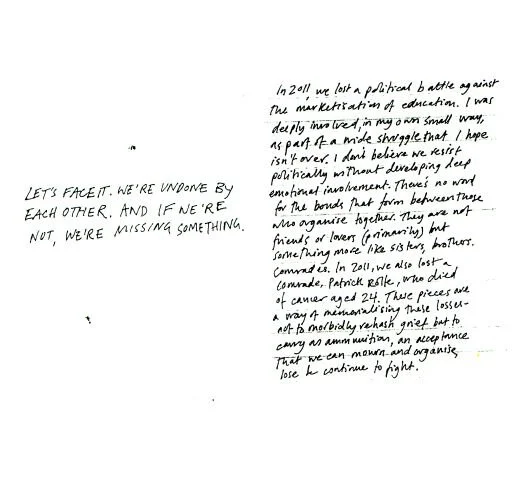 LET'S FACE IT. WE'RE UNDONE BY
EACH OTHER. AND IF WE'RE
NOT, WE'RE MISSING SOMETHING.
In 2011 we lost a political battle against
the marketisation of education. I was
deeply involved, in my own small way,
as part of a wide struggle that I hope
isn't over. I don't believe we resist
politically without developing deep
emotional involvement. There's no word
for the bonds that form between those
who organise together. They are not
friends or lovers (primarily) but
something more like sisters, brothers.
Comrades. In 2011, we also lost a
comrade, Patrick Rolfe, who died
of cancer aged 24. These pieces are
a way of memorialising these losses-
not to morbidly rehash grief but to
carry as ammunition, an acceptance
that we can mourn and organise,
lose & continue to fight.